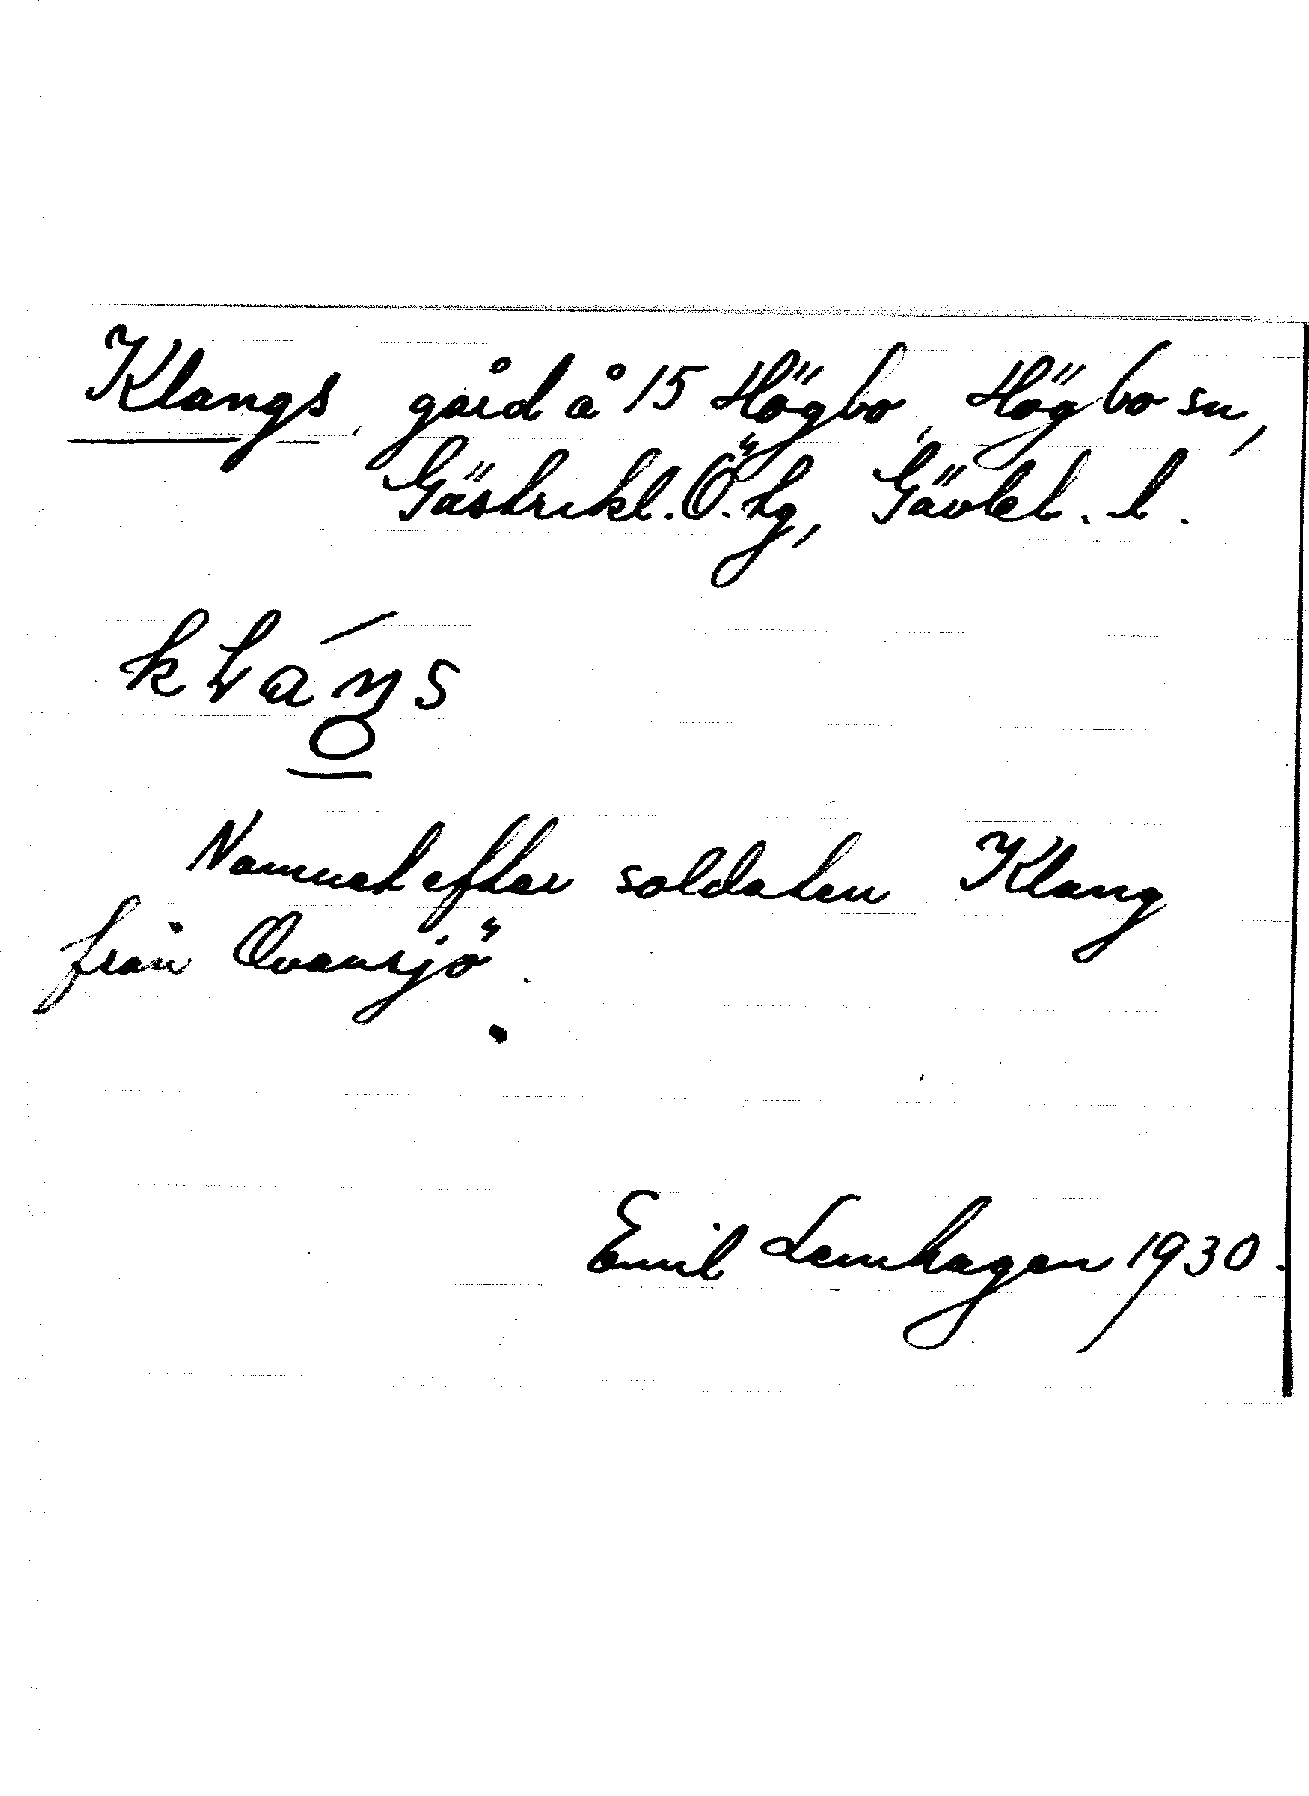 Klangs, gård å 15 Högbo, Högbo sn,
Gästrikl. Ö. tg, Gävleb. l.
klaŋs
Namnet efter soldaten Klang
från Ovansjö.
Emil Lemhagen 1930.